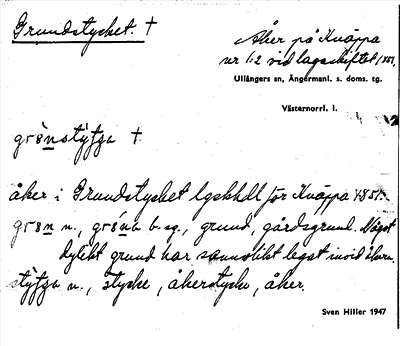 Grundstycket. †
Åker på Knäppa
nr 1:2 vid lagaskiftet 1851.
Ullångers sn, Ångermanl. s. doms. tg.
Västernorrl. l.
åker i Grundstycket lgskhdl för Knäppa 1851.
n., b. sg., grund, gårdsgrund. Något
dylikt grund har sannolikt legat invid åkern.
n., stycke, åkerstycke, åker.
Sven Hiller 1947